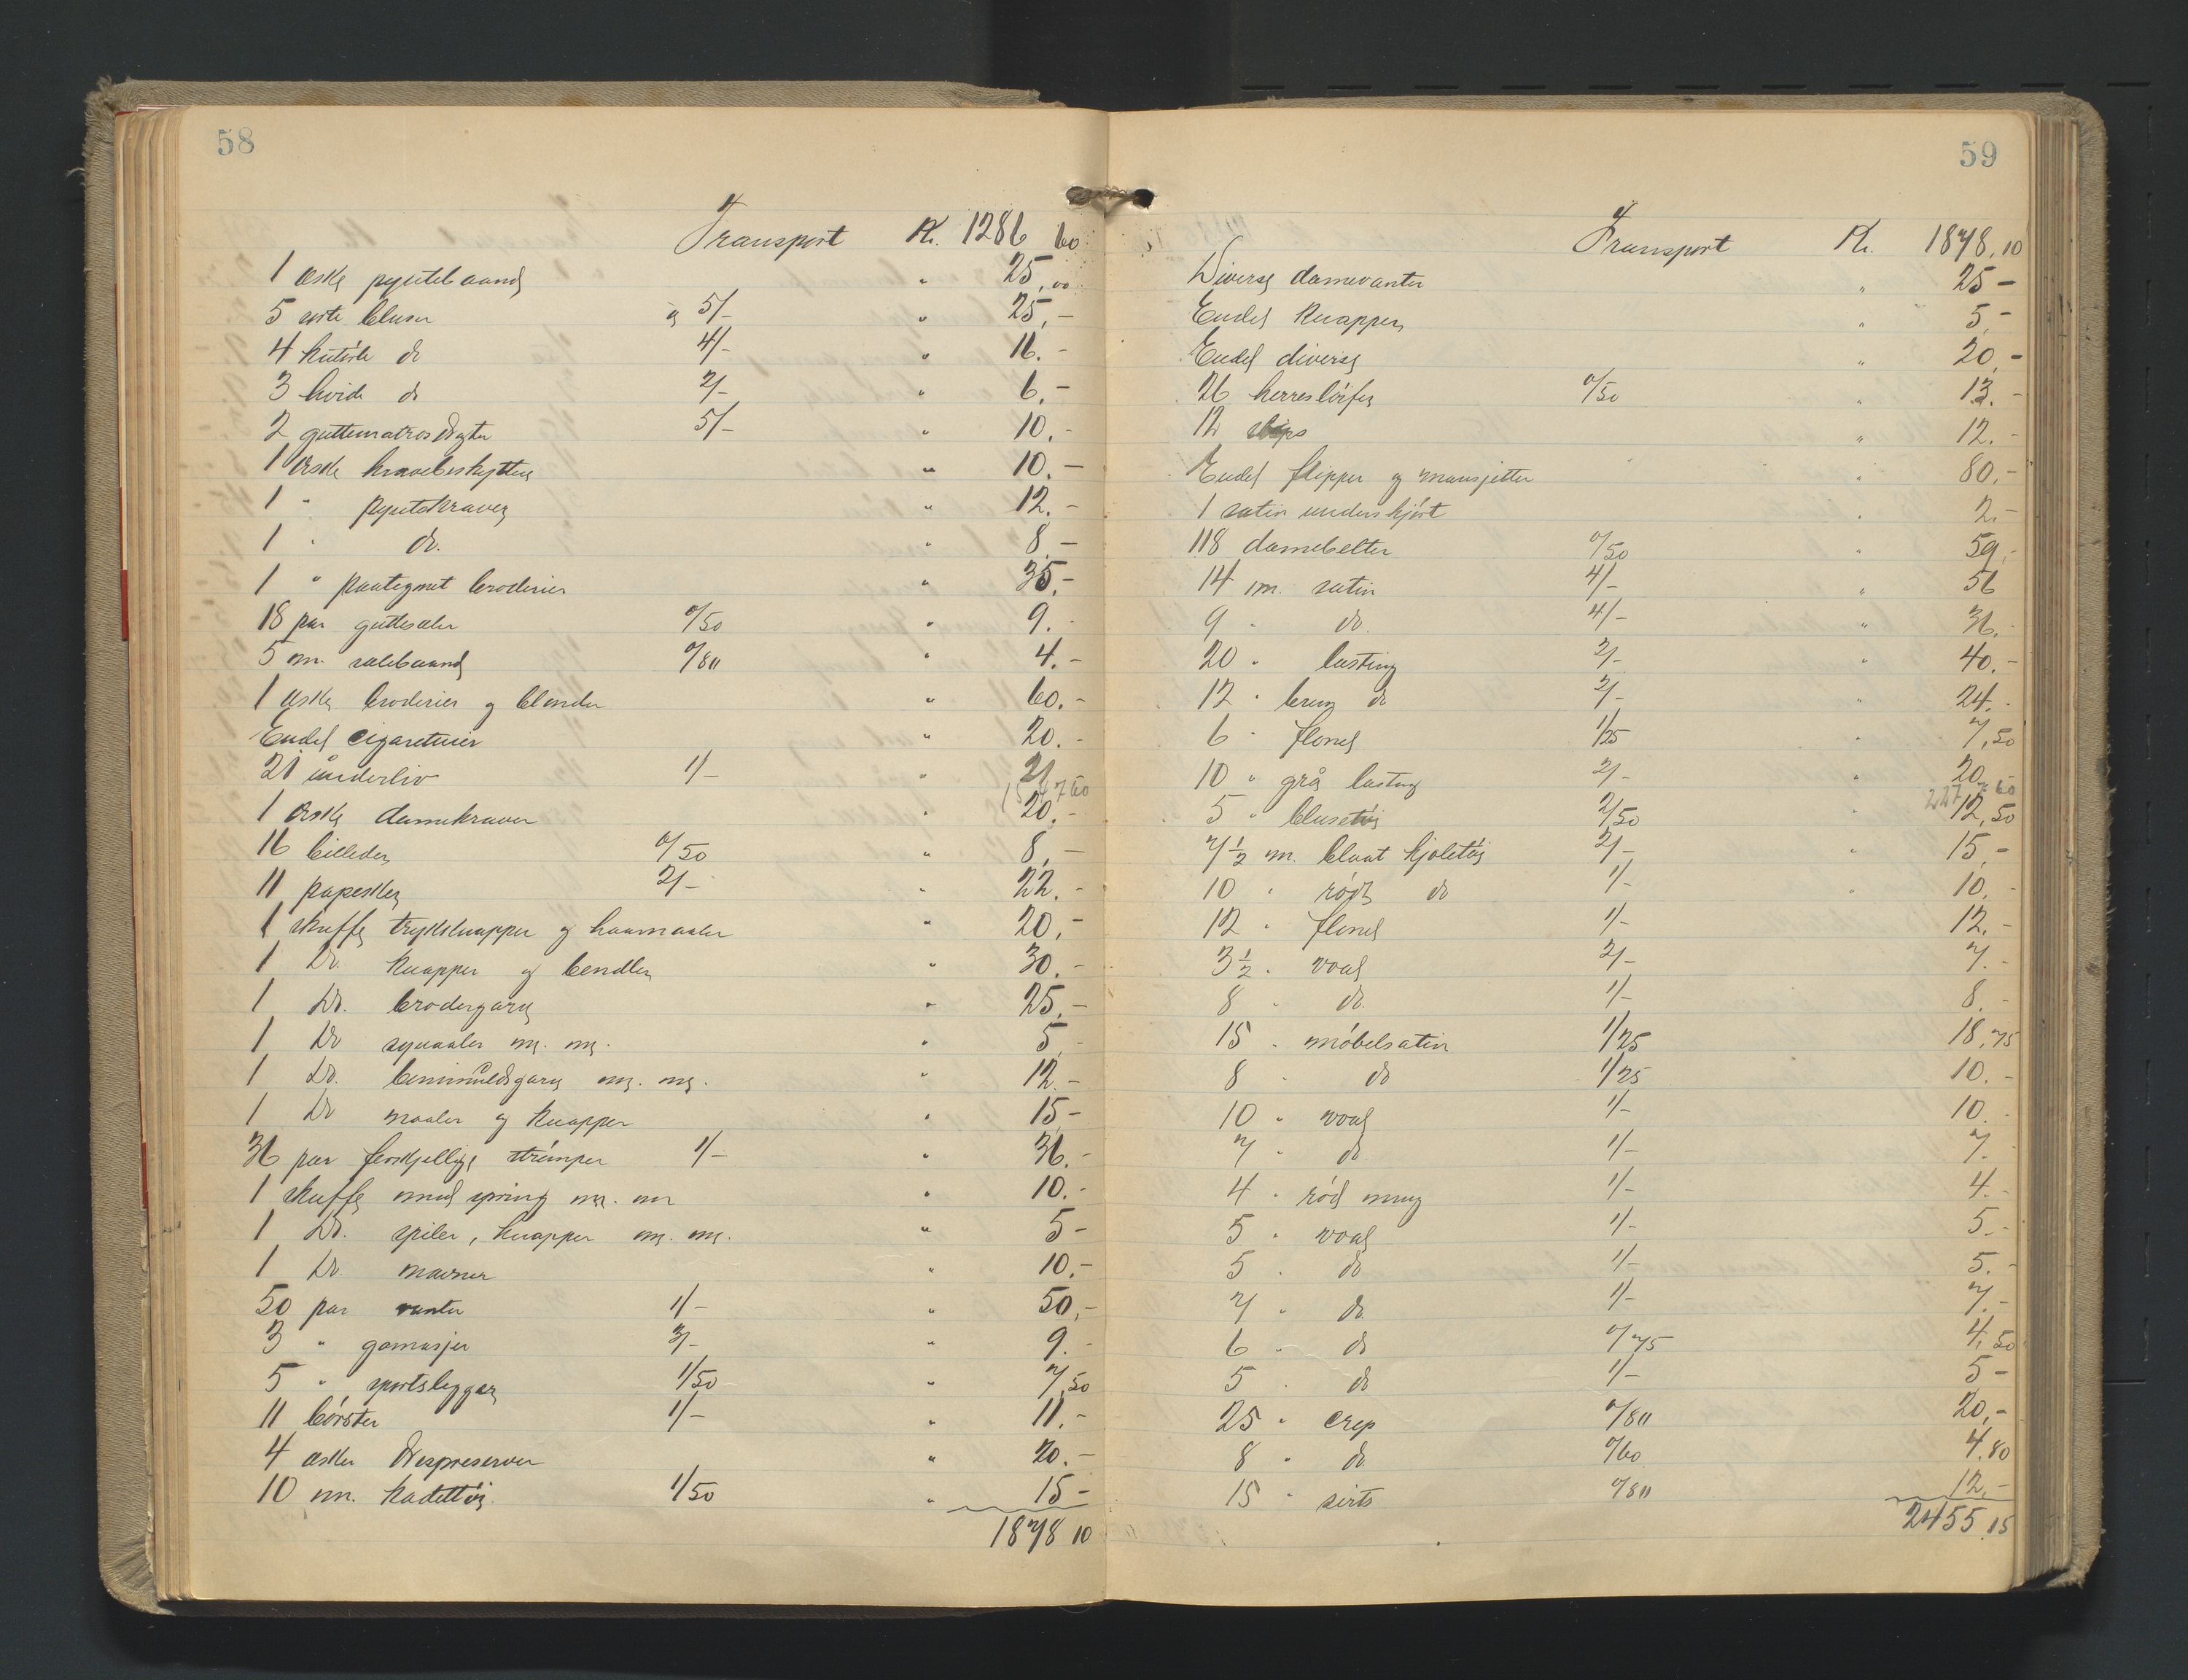 58
Transport Kr. 1286 60
1 æske pyntebaand " 25,00
5 sorte bluser á 5/- " 25,-
4 kulørte do 4/- " 16.-
3 hvide do 2/- " 6,-
2 guttematrosdragter 5/- " 10,-
1 æske kravebeskyttere " 10,-
1 " pyntekraver " 12.-
1 " do. " 8,-
1 " paategnet broderier " 35,-
18 par gutteseler 0/50 " 9.-
5 m. selebaand 0/80 " 4.-
1 æske broderier og blonder " 60.-
Endel cigaretuier " 20.-
21 underliv 1/- " 21
1567 60
1 æske damekraver " 20.-
16 billeder 0/50 " 8,-
11 papesker 2/- " 22.-
1 skuffe trykknapper og haarnaaler " 20,-
1 Do. knapper og bendler " 30.-
1 Do. brodergarn " 25,-
1 Do synaaler m. m. " 5,-
1 Do. bommuldsgarn m. m. " 12.-
1 Do naaler og knapper " 15-
36 par forskjellige strømper 1/- " 36.-
1 skuffe med spring m. m " 10.-
1 Do. spiler, knapper m. m. " 5-
1 Do. " 10,-
50 par vanter 1/- " 50,-
3 " gamasjer 3/- " 9.-
5 " sportslegger 1/50 " 7,50
11 børster 1/- " 11.-
4 æsker " 20.-
10 m. kadettøi 1/50 " 15-
1878 10
59
Transport Kr. 1878,10
Diverse damevanter " 25-
Endel knapper " 5,-
Endel diverse " 20,-
26 herresløifer 0/50 " 13.-
12 slips " 12.-
Endel flipper og mansjetter " 80,-
1 satin underskjørt " 2.-
118 damebelter 0/50 " 59,-
14 m. satin 4/- " 56
9 " do. 4/- " 36.-
20 " lasting 2/- " 40.-
12 " brun do 2/- " 24.-
6 " flonel 1/25 " 7,50
10 " grå lasting 2/- " 20
227 60
5 " blusetøi 2/50 " 12,50
7½ m. blaat kjoletøi 2/- " 15,-
10 " rødt do 1/- " 10.-
12 " flonel 1/- 12.-
3½ " voal 2/- 7.-
8 " do. 1/- 8.-
15 " møbelsatin 1/25 18,75
8 " do 1/25 10.-
10 " voal 1/- 10.-
7 " do 1/- 7.-
4 " rød 1/- 4.-
5 " voal 1/- 5.-
5 " do 1/- 5.-
7 " do. 1/- 7.-
6 " do 0/75 4,50
5 " do 1/- 5-
25 " crep 0/80 20,-
8 " do. 0/60 4.80
15 " sirts 0/80 12,-
2455.15